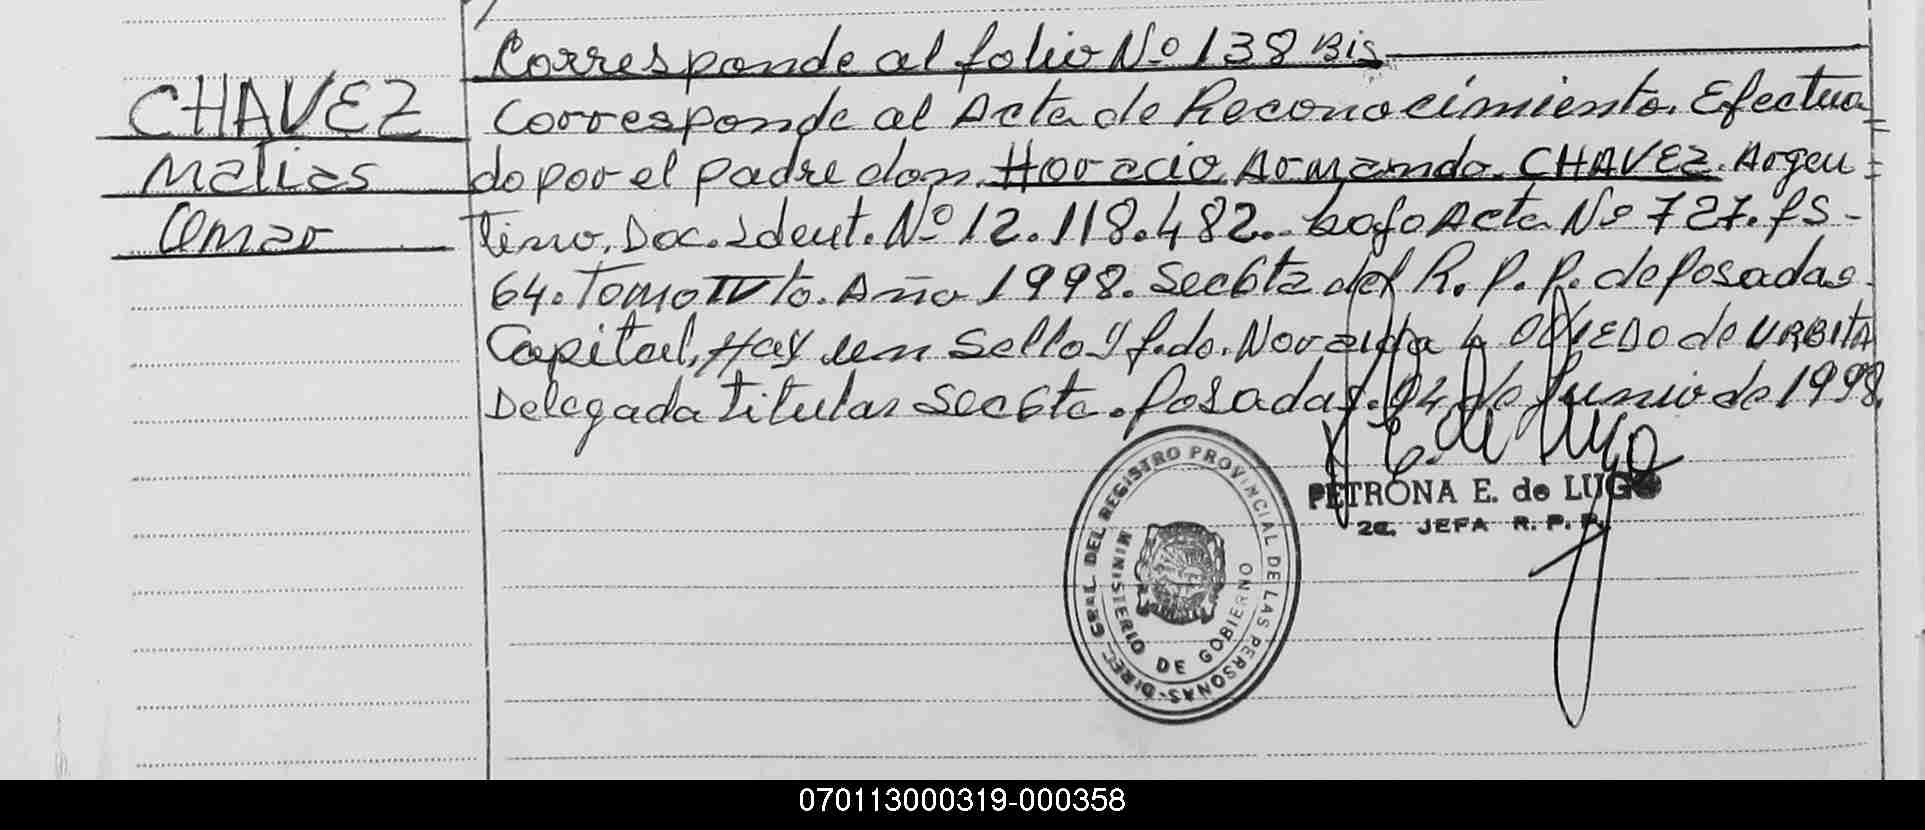 Corresponde al folio Nº 138 Bis
CHAVEZ
Matias
Omar
Corresponde al Acta de Reconocimiento. Efectua=
do por el padre don. Horacio Armando. CHAVEZ. Argen=
tino. Doc. Ident. Nº 12.118.482.. bajo Acta Nº 727. fs-
64. Tomo IVto. Año 1998. Sec 6ta del R. P. P. de Posadas.
Capital, Hay un Sello y f.do. L OVIEDO de URBITA
Delegada titular Sec 6ta. Posadas. 04 de Junio de 1998.
E. de Lugo
PETRONA E. de LUGO
2a. JEFA R. P. P.
DIREC. GRAL. DEL REGISTRO PROVINCIAL DE LAS PERSONAS-
MINISTERIO DE GOBIERNO
070113000319-000358